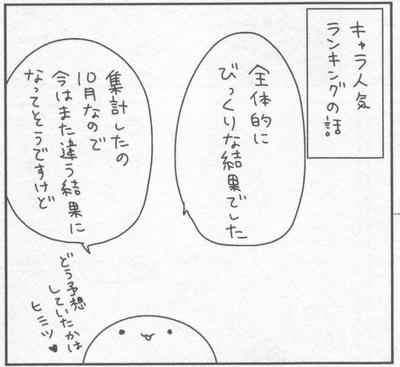 キャラ人気
ランキングの話
全体的に
びっくりな結果でした
集計したの
10月なので
今はまた違う結果に
なってそうですけど
どう予想
していたかは
ヒミツ♥